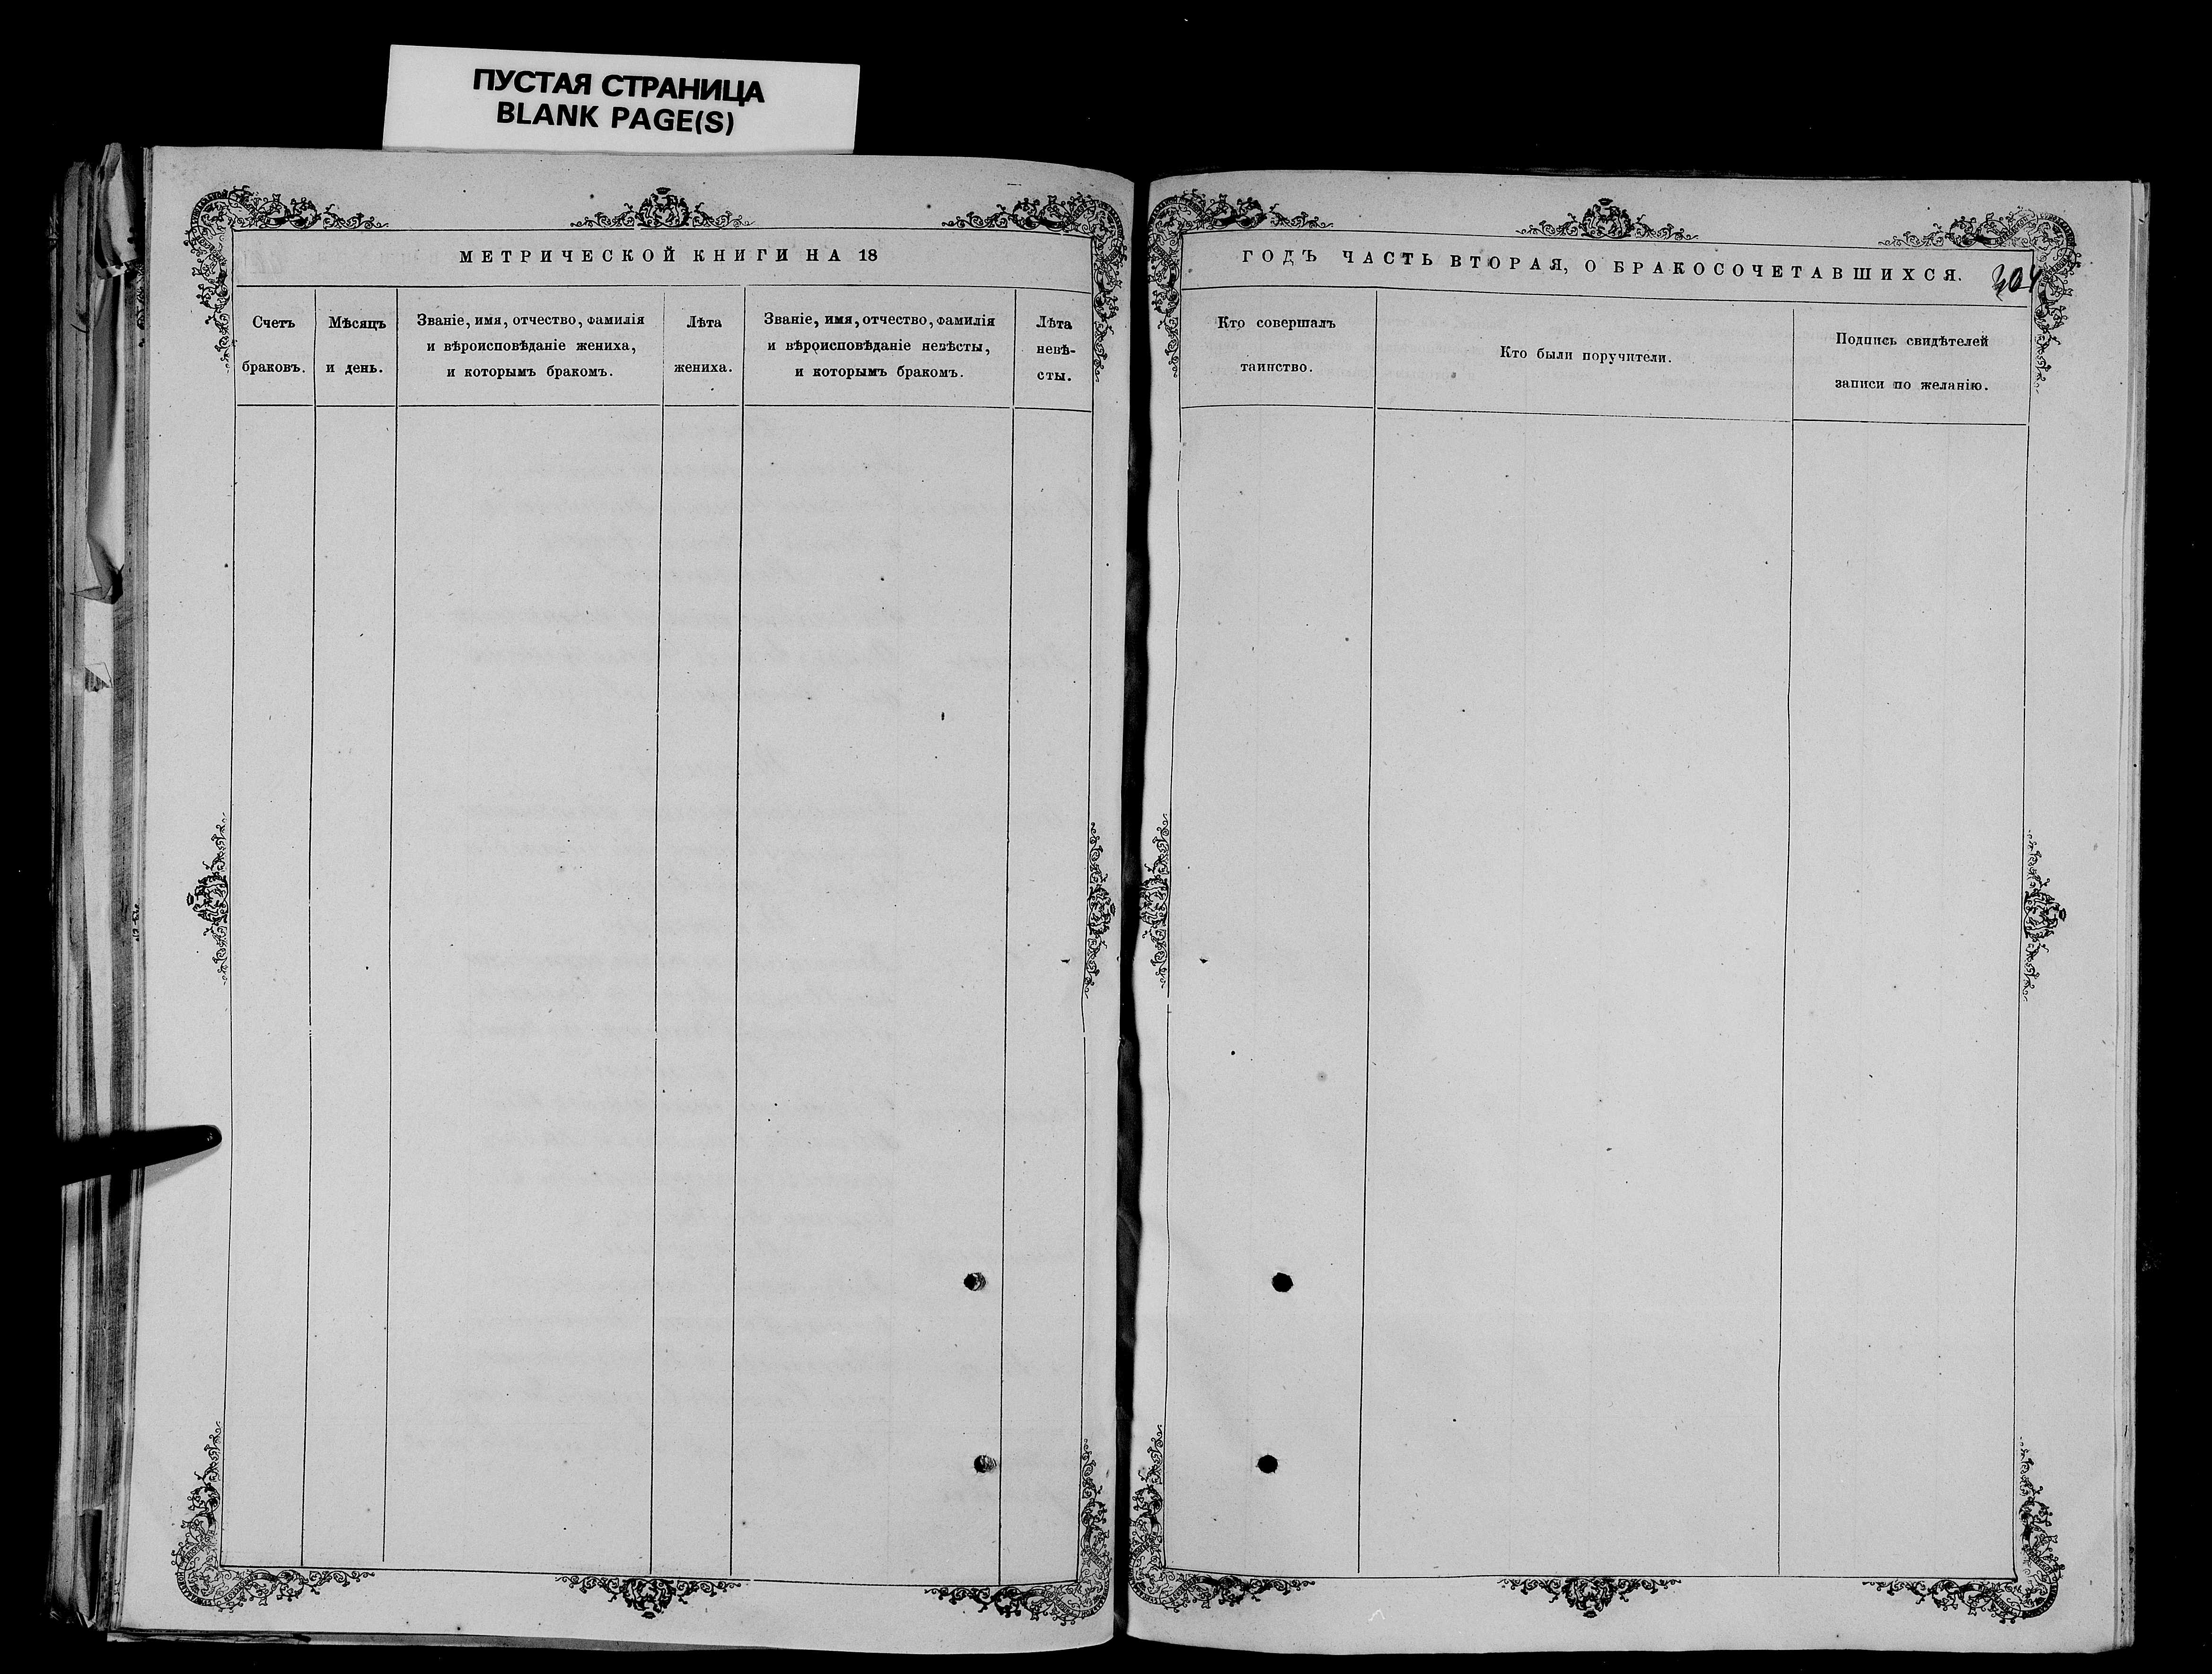 ПУСТАЯ СТРАНИЦА
BLANK PAGE(S)
МЕТРИЧЕСКОЙ КНИГИ НА 18
Счетъ
браковъ.
Мѣсяцъ
и день.
Званіе, имя, отчество, фамилія
и вѣроисповѣданіе жениха,
и которымъ бракомъ.
Лѣта
жениха.
Званіе, имя, отчество, фамилія
и вѣроисповѣданіе невѣсты,
и которымъ бракомъ.
Лѣта
невѣ-
сты.
ГОДЪ ЧАСТЬ ВТОРАЯ, О БРАКОСОЧЕТАВШИХСЯ.
Кто совершалъ
таинство.
Кто были поручители.
Подпись свидѣтелей
записи по желанію.